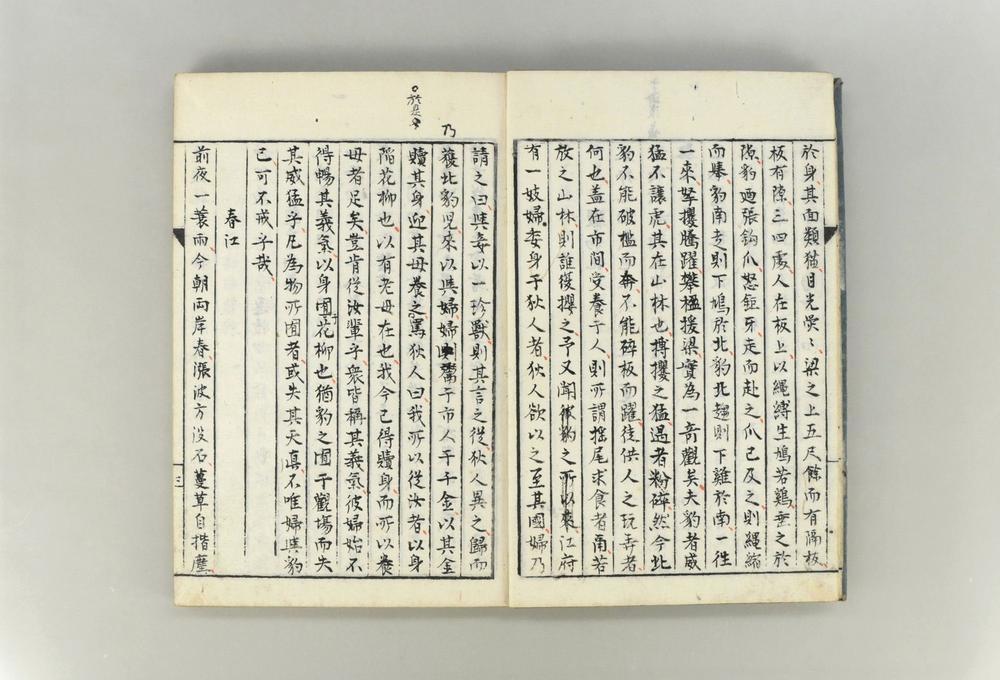 於身其面類猫目光熒〻梁之上五尺餘而有隔板
板有隙三四處人在板上以繩縛生鳩若鷄垂之於
隙豹廼張鈎爪怒鉅牙走而赴之爪已及之則繩縮
而擧豹南走則下鳩於北豹北趨則下雞於南一徃
一來拏攖騰躍攀楹援梁實為一奇觀矣夫豹者威
猛不讓虎其在山林也搏攖之猛遇者粉碎然今此
豹不能破檻而奔不能碎板而躍徒供人之玩弄者
何也盖在市間受養于人則所謂揺尾求食者甬若
放之山林則誰復攖之予又聞彼豹之所以來江府
有一妓婦委身于狄人者狄人欲以之至其國婦乃
請之曰與妾以一珍獸則其言之從狄人異之歸而
獲此豹児來以與婦婦則鬻于市人千千金以其金
贖其身迎其母養之罵狄人曰我所以從汝者以身
陷花柳也以有老母在也我今已得贖身而所以養
母者足矣豈肯從汝輩乎衆皆稱其義氣彼婦始不
得暢其義氣以身囿于花柳也猶豹之囿于觀場而失
其威猛乎凡為物所囿者或失其天真不唯婦與豹
已可不戒乎哉
春江
前夜一蓑雨今朝両岸春漲波方没石蔓草自揩塵
乃
於是
三